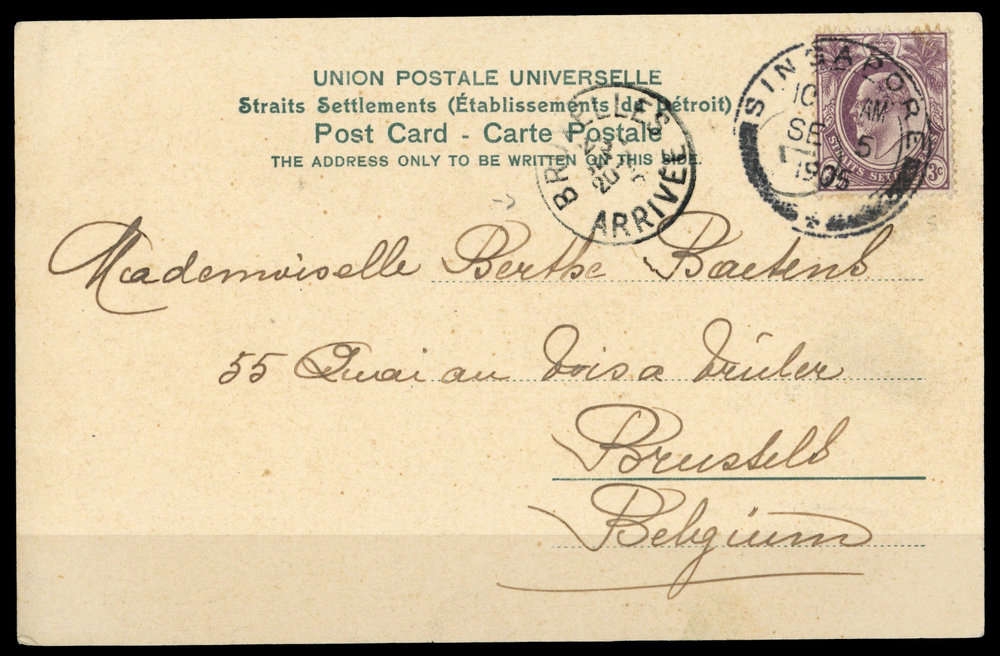 UNION POSTALE UNIVERSELLE
Straits Settlements (Établissements de Détroit)
Post Card - Carte Postale
THE ADDRESS ONLY TO BE WRITTEN ON THIS SIDE.
SINGAPORE
10 AM
SE 5
1905
STRAITS SETT
3c
BRUXELLES
20
ARRIVÉE
Mademoiselle Berthe Baetens
55 Quai au Bois a Brûler
Brussels
Belgium